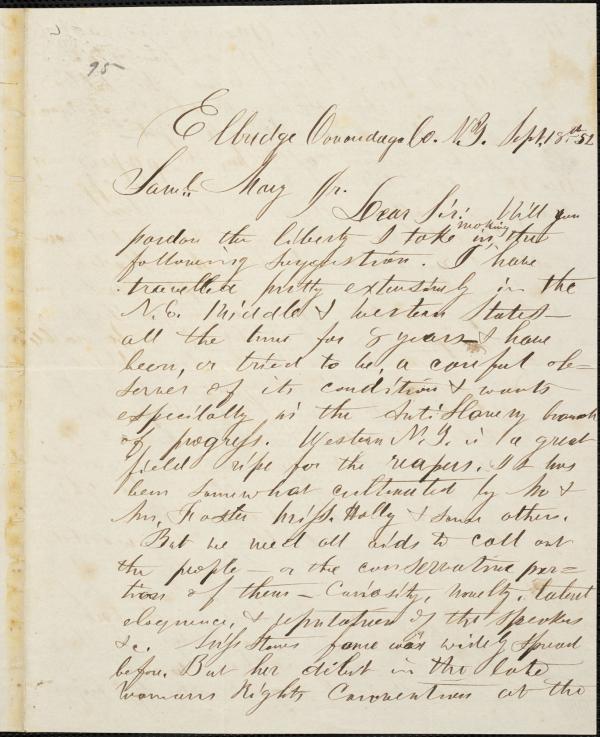 95
Elbridge Onondaga Co. N.Y. Sept. 18th 52
Saml. May Jr.
Dear Sir: Will you
making
pardon the liberty I take in the
following suggestion. I have
travelled pretty extensively in the
N.E. Middle & western States—
all the time for 8 years & have
been, or tried to be, a careful ob=
server of its condition & wants
especitally in the Anti Slavery branch
of progress. Western N.Y. is a great
field ripe for the reapers. It has
been somewhat cultivated by Mr &
Mrs. Foster Miss. Holly & some others.
But we need all aids to call out
the people — or the conservative por=
tion of them — Curiosity, novelty, talent
eloquence, & reputation of the speakers
&c. Miss Stones fame was widely spread
before. But her debut in the late
Womans Rights Conventions at the